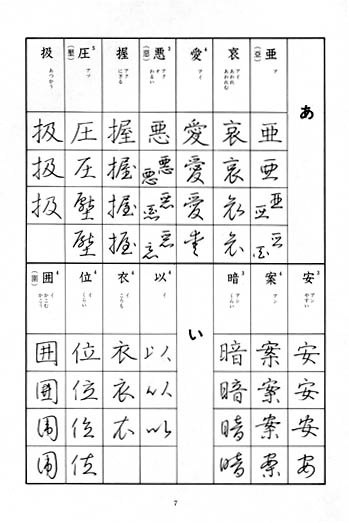 あ
亜 ア
（亞）
哀 アイ あわれ あわれむ
愛 4 アイ
悪 3 アク オ わるい
（惡）
握 アク にぎる
圧 5 アツ
（壓）
扱 あつかう
亜 哀 愛 悪 握 圧 扱
亜 哀 愛 悪 悪 握 圧 扱
亜 亞 哀 愛 惡 悪 握 壓 扱
亞 亞 哀 愛 惡 惡 握 壓
安 3 アン やすい
案 4 アン
暗 3 アン くらい
い
以 4 イ
衣 4 イ ころも
位 4 イ くらい
囲 4 イ かこむ かこう
（圍）
安 案 暗 以 衣 位 囲
安 案 暗 以 衣 位 圍
安 案 暗 以 衣 位 圍
安 案 暗 位 圍
7